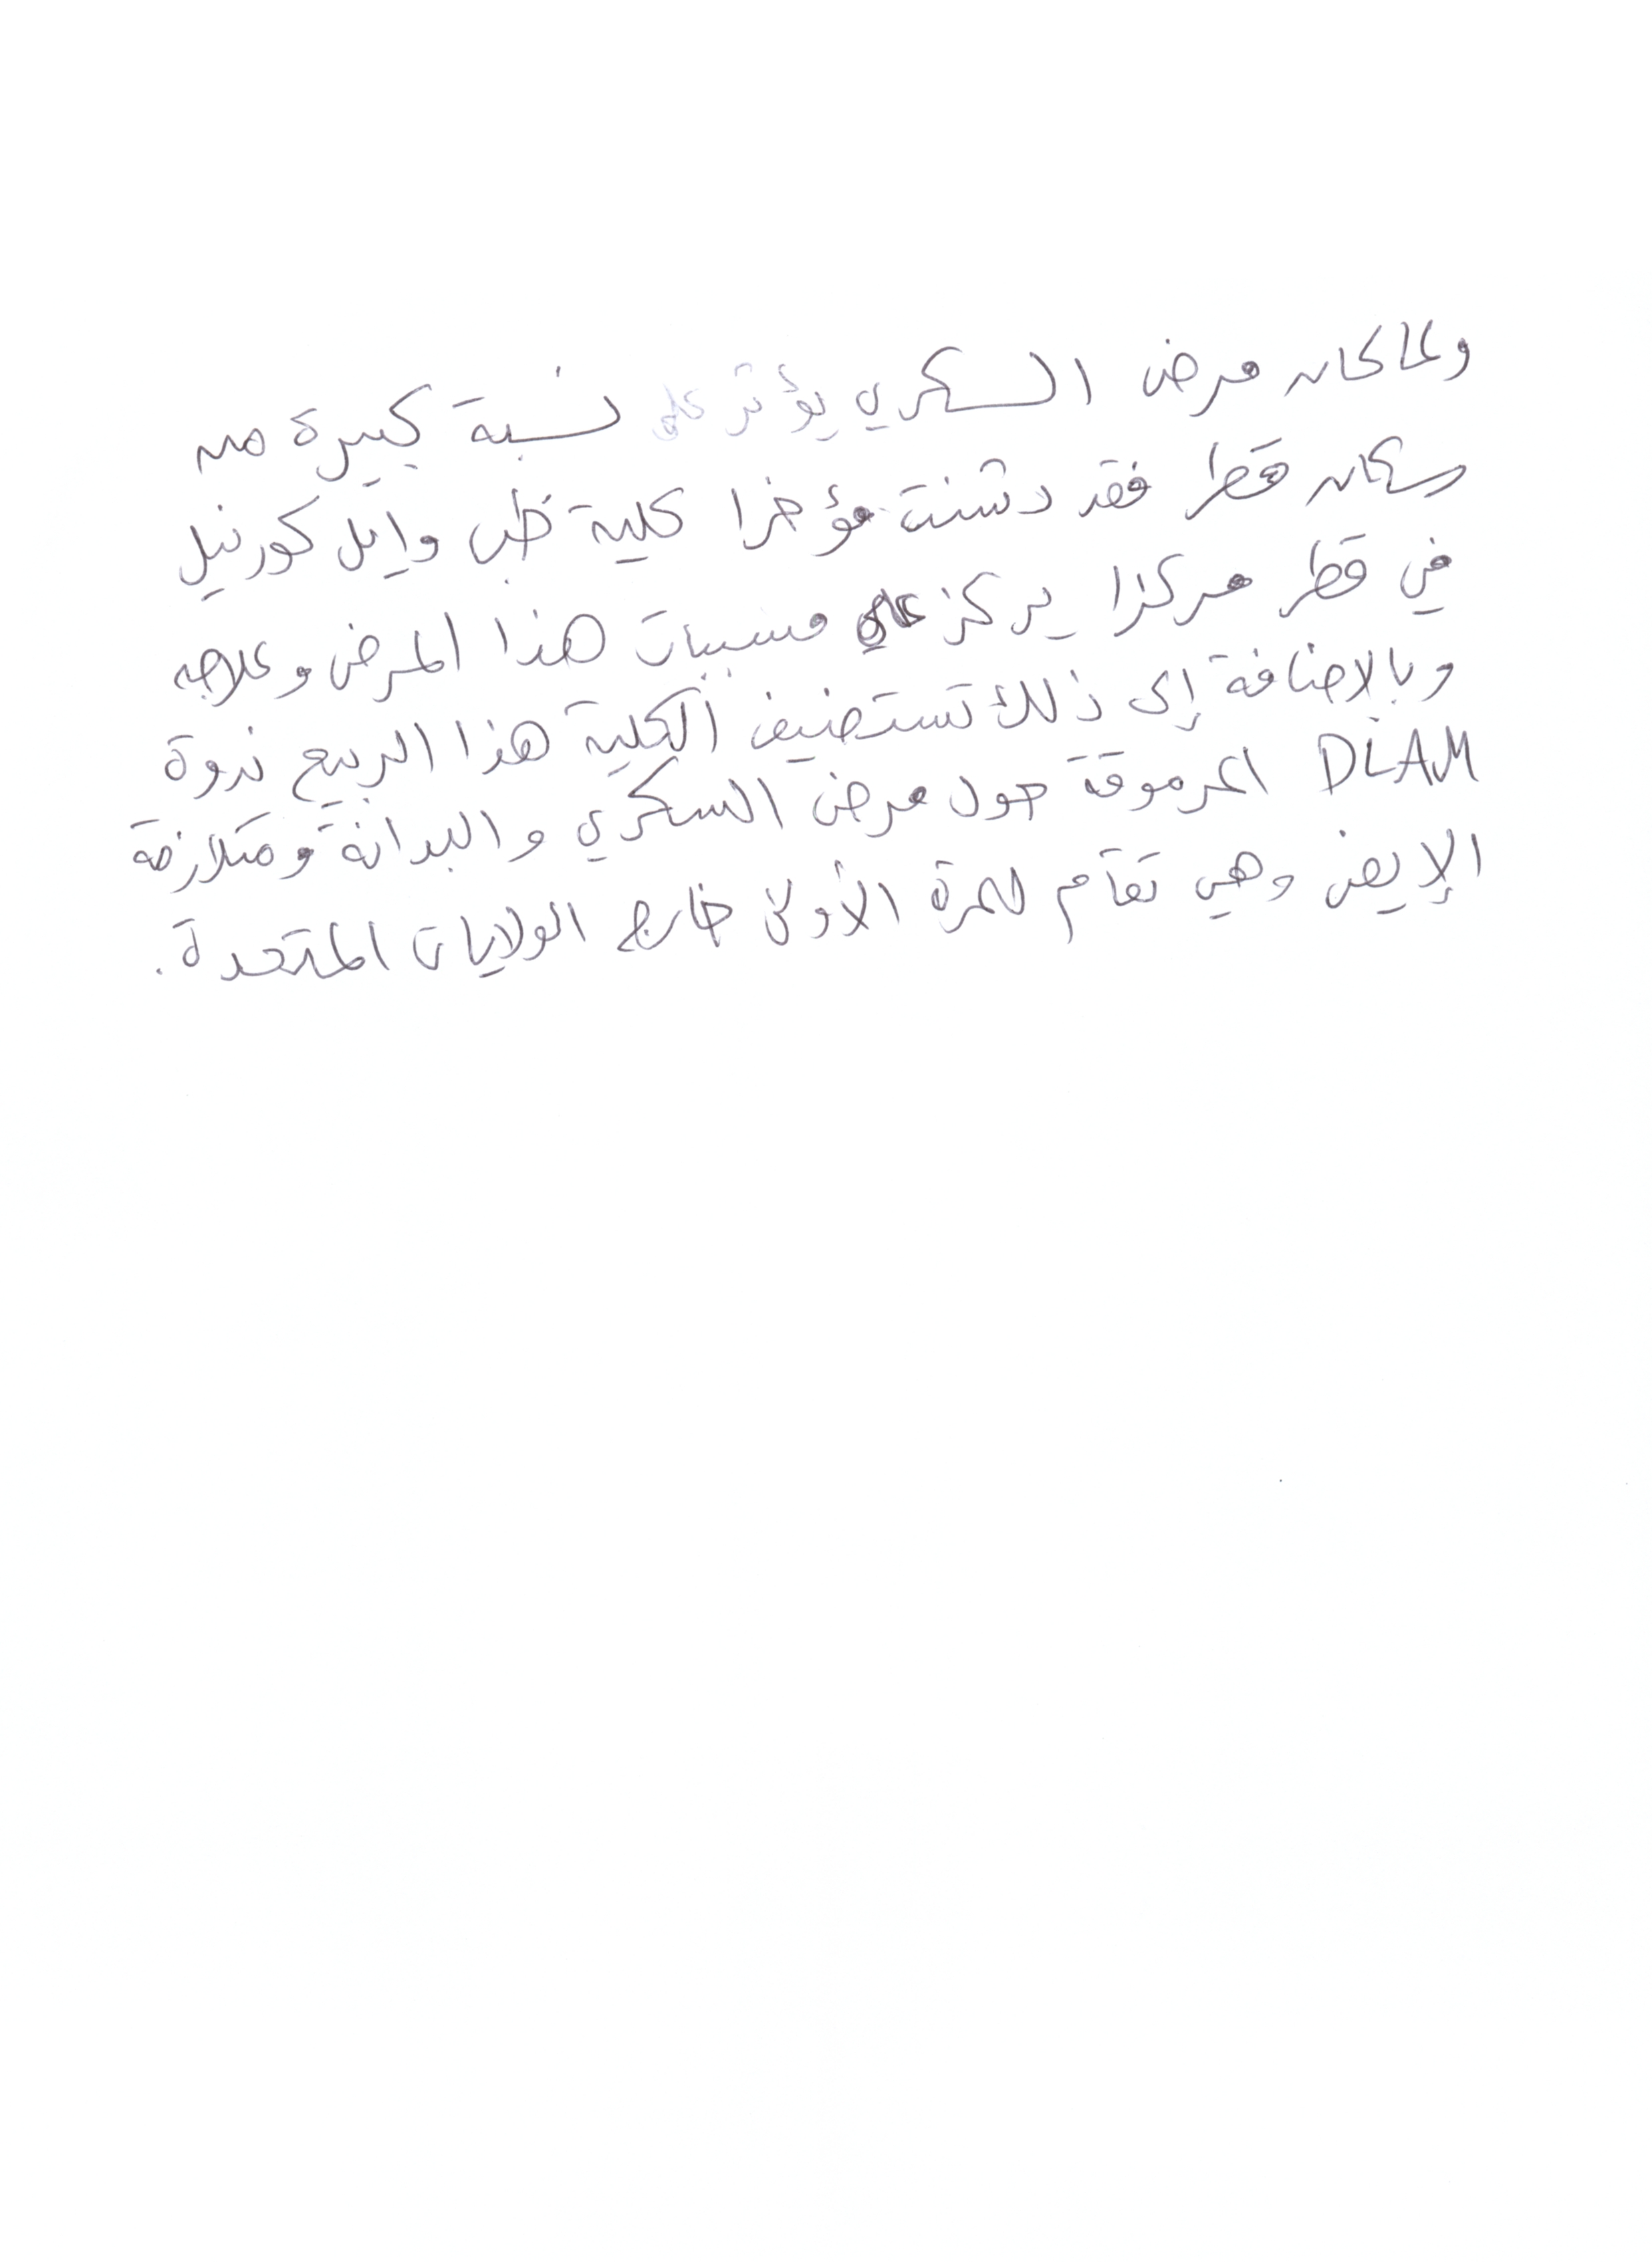 ولما كان مرض السكري يؤثر على نسبة كبيرة من
سكان قطر فقد دشنت مؤخرا كلية طب وايل كورنيل
في قطر مركزا يركز على مسببات هذا المرض وعلاجه
وبالاضافة إلى ذلك تستضيف الكلية هذا الربيع ندوة
DLAM المرموقة حول مرض السكري والبدانة ومتلازمة
الإيض وهي تقام للمرة الأولى خارج الولايات المتحدة.